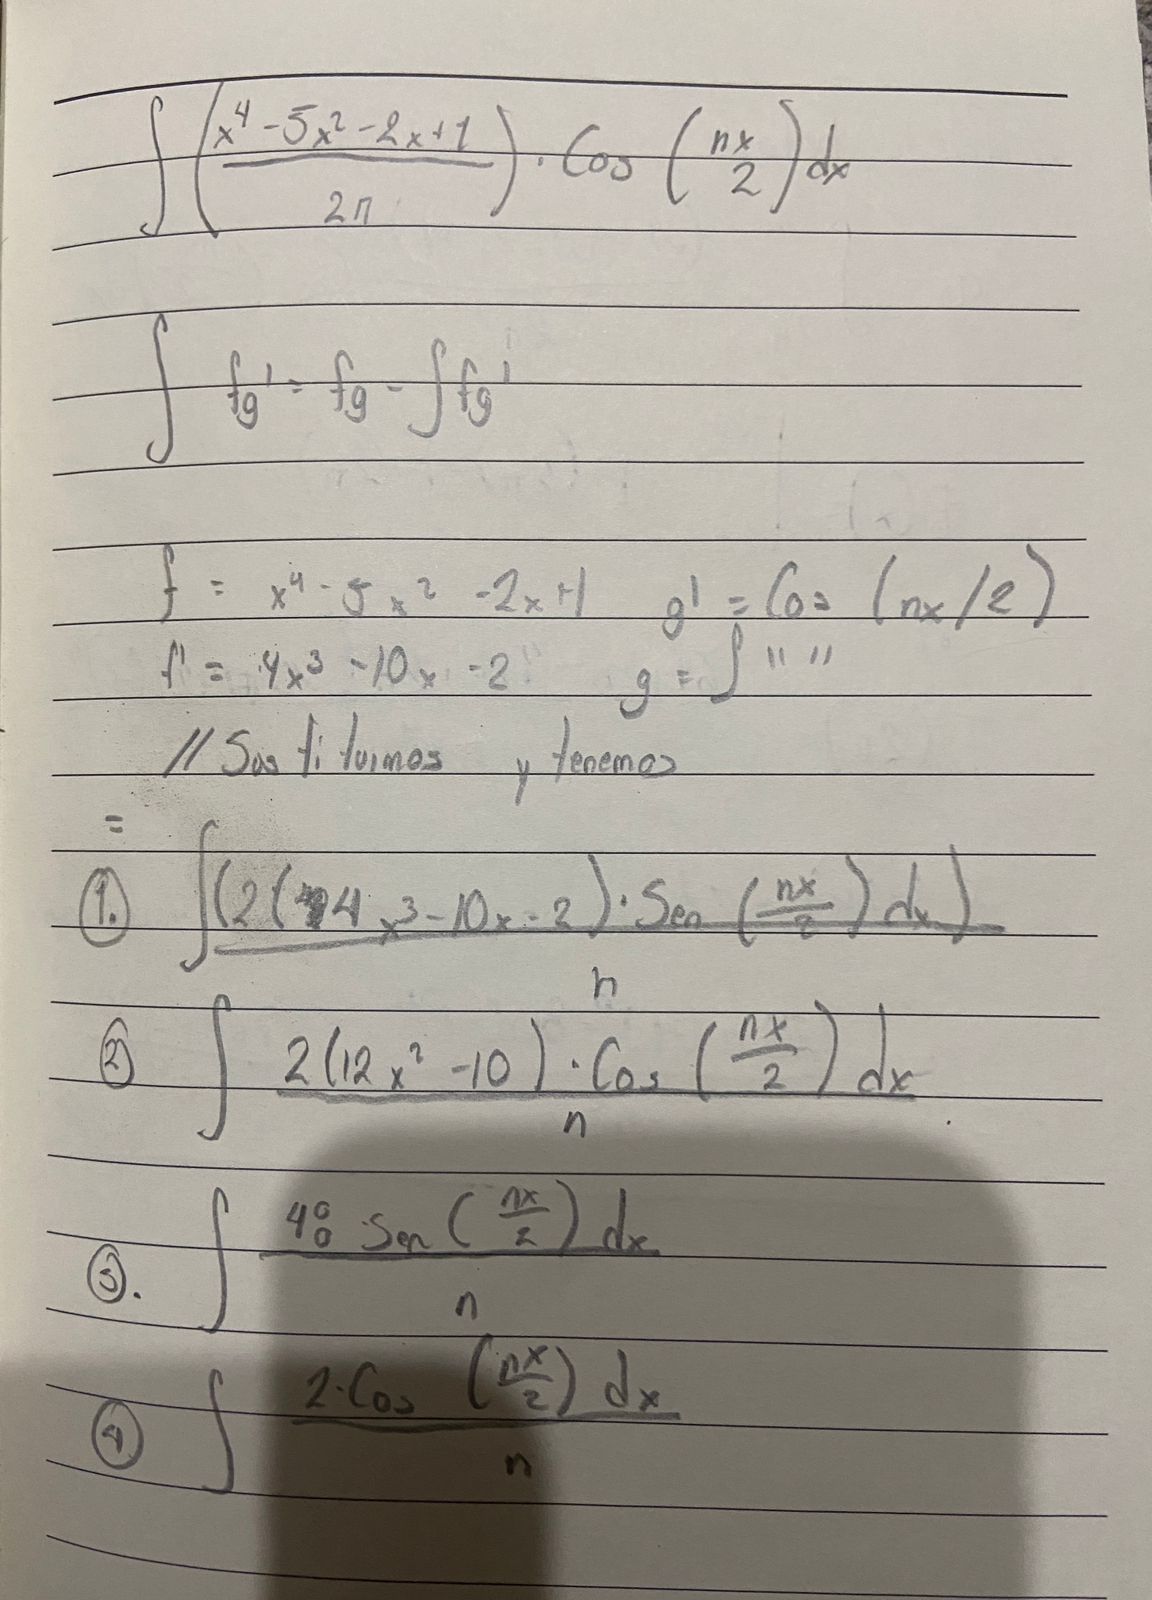 ∫ (x⁴ - 5x² - 2x + 1 / 2π) · Cos (nx/2) dx
∫ fg' = fg - ∫ fg'
f = x⁴ - 5x² - 2x + 1 g' = Cos (nx/2)
f' = 4x³ - 10x - 2 g = ∫ " "
// Sustituimos y tenemos
=
1. ∫ (2(4x³ - 10x - 2) · Sen (nx/2) dx) / n
2 ∫ 2(12x² - 10) · Cos (nx/2) dx / n
3. ∫ Sen (nx/2) dx / n
4 ∫ 2 · Cos (nx/2) dx / n